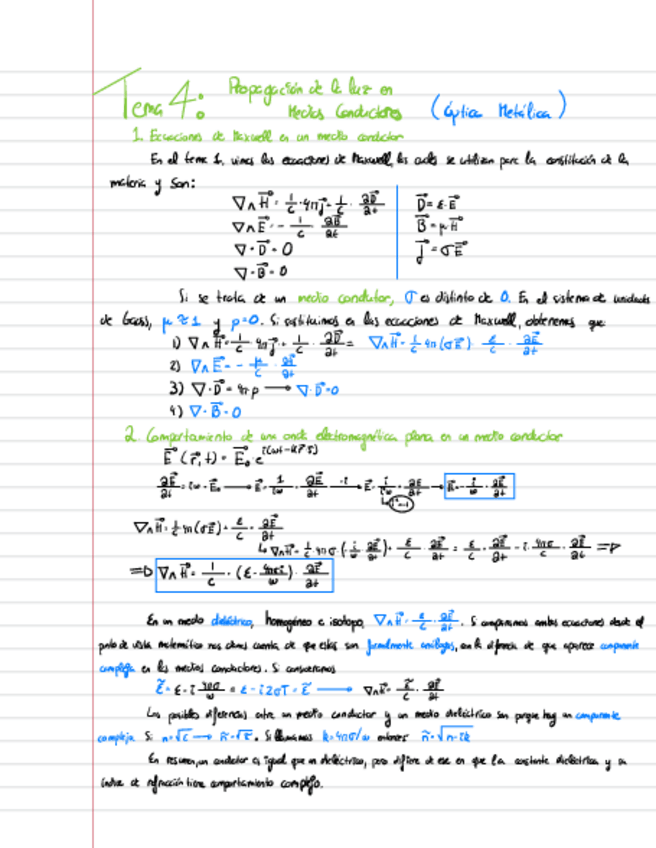 Tema 4: Propagación de la luz en
Medios Conductores (Óptica Metálica)
1. Ecuaciones de Maxwell en un medio conductor
En el tema 1, vimos las ecuaciones de Maxwell, las cuales se utilizan para la constitución de la
materia y son:
∇∧H⃗ = 1/c · 4πj⃗ + 1/c · ∂D⃗/∂t
D⃗ = ε·E⃗
∇∧E⃗ = - 1/c ∂B⃗/∂t
B⃗ = μ·H⃗
∇·D⃗ = 0
j⃗ = σE⃗
∇·B⃗ = 0
Si se trata de un medio conductor, σ es distinto de 0. En el sistema de unidades
de Gauss, μ ≈ 1 y ρ=0. Si sustituimos en las ecuaciones de Maxwell, obtenemos que:
1) ∇∧H⃗ = 1/c 4πj⃗ + 1/c · ∂D⃗/∂t = ∇∧H⃗ = 1/c 4π(σE⃗) + ε/c · ∂E⃗/∂t
2) ∇∧E⃗ = - μ/c · ∂H⃗/∂t
3) ∇·D⃗ = 4πρ → ∇·D⃗ = 0
4) ∇·B⃗ = 0
2. Comportamiento de una onda electromagnética plana en un medio conductor
E⃗(r⃗,t) = E⃗₀·e^i(ωt-k⃗·r⃗)
∂E⃗/∂t = iω·E⃗₀ → E⃗ = 1/iω · ∂E⃗/∂t
∇∧H⃗ = 1/c 4π(σE⃗) + ε/c · ∂E⃗/∂t
↳ ∇∧H⃗ = 1/c 4πσ (-i/ω ∂E⃗/∂t) + ε/c · ∂E⃗/∂t = ε/c · ∂E⃗/∂t - i · 4πσ/c · ∂E⃗/∂t ⇒
⇒ ∇∧H⃗ = 1/c · (ε - 4πσi/ω) · ∂E⃗/∂t
En un medio dieléctrico, homogéneo e isótopo, ∇∧H⃗ = ε/c · ∂E⃗/∂t. Si comparamos ambas ecuaciones desde el
punto de vista matemático nos damos cuenta de que estas son formalmente análogas, con la diferencia de que aparece componente
compleja en los medios conductores. Si consideramos
ε̃ = ε - i 4πσ/ω = ε - i2σT = ε̃ → ∇∧H⃗ = ε̃/c · ∂E⃗/∂t
Las posibles diferencias entre un medio conductor y un medio dieléctrico son porque hay un componente
compleja. Si n=√ε → ñ=√ε̃. Si llamamos k=4πσ/ω entonces ñ=√n-ik
En resumen, un conductor es igual que un dieléctrico, pero difiere de ese en que la constante dieléctrica y su
índice de refracción tiene comportamiento complejo.